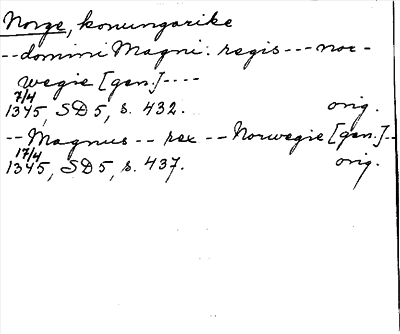 Norge, konungarike
-- domini Magni. regis --- nor-
wegie [gen.] ----
7/4
1345, SD 5, s. 432. orig.
-- Magnus -- rex -- Norwegie [gen.] --
17/4
1345, SD 5, s. 437. orig.